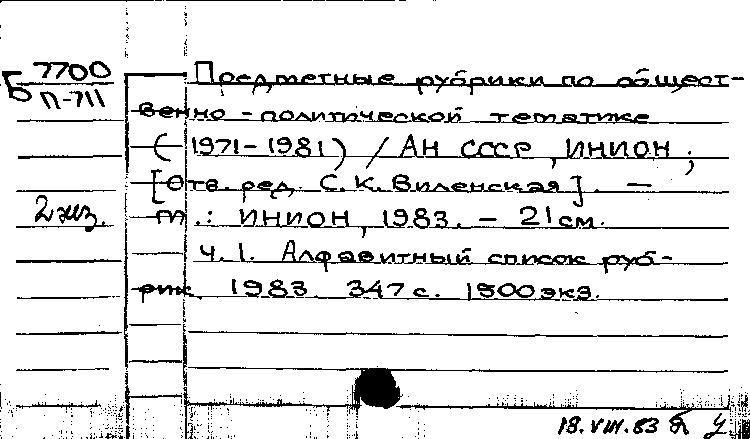 Б 7700
П-711
Предметные рубрики по общест-
венно-политической тематике
(1971-1981) / АН СССР, ИНИОН;
[Отв. ред. С.К. Виленская]. —
2 экз.
М.: ИНИОН, 1983. - 21 см.
Ч. 1. Алфавитный список руб-
рик. 1983. 347 с. 1500 экз.
18.VIII.83